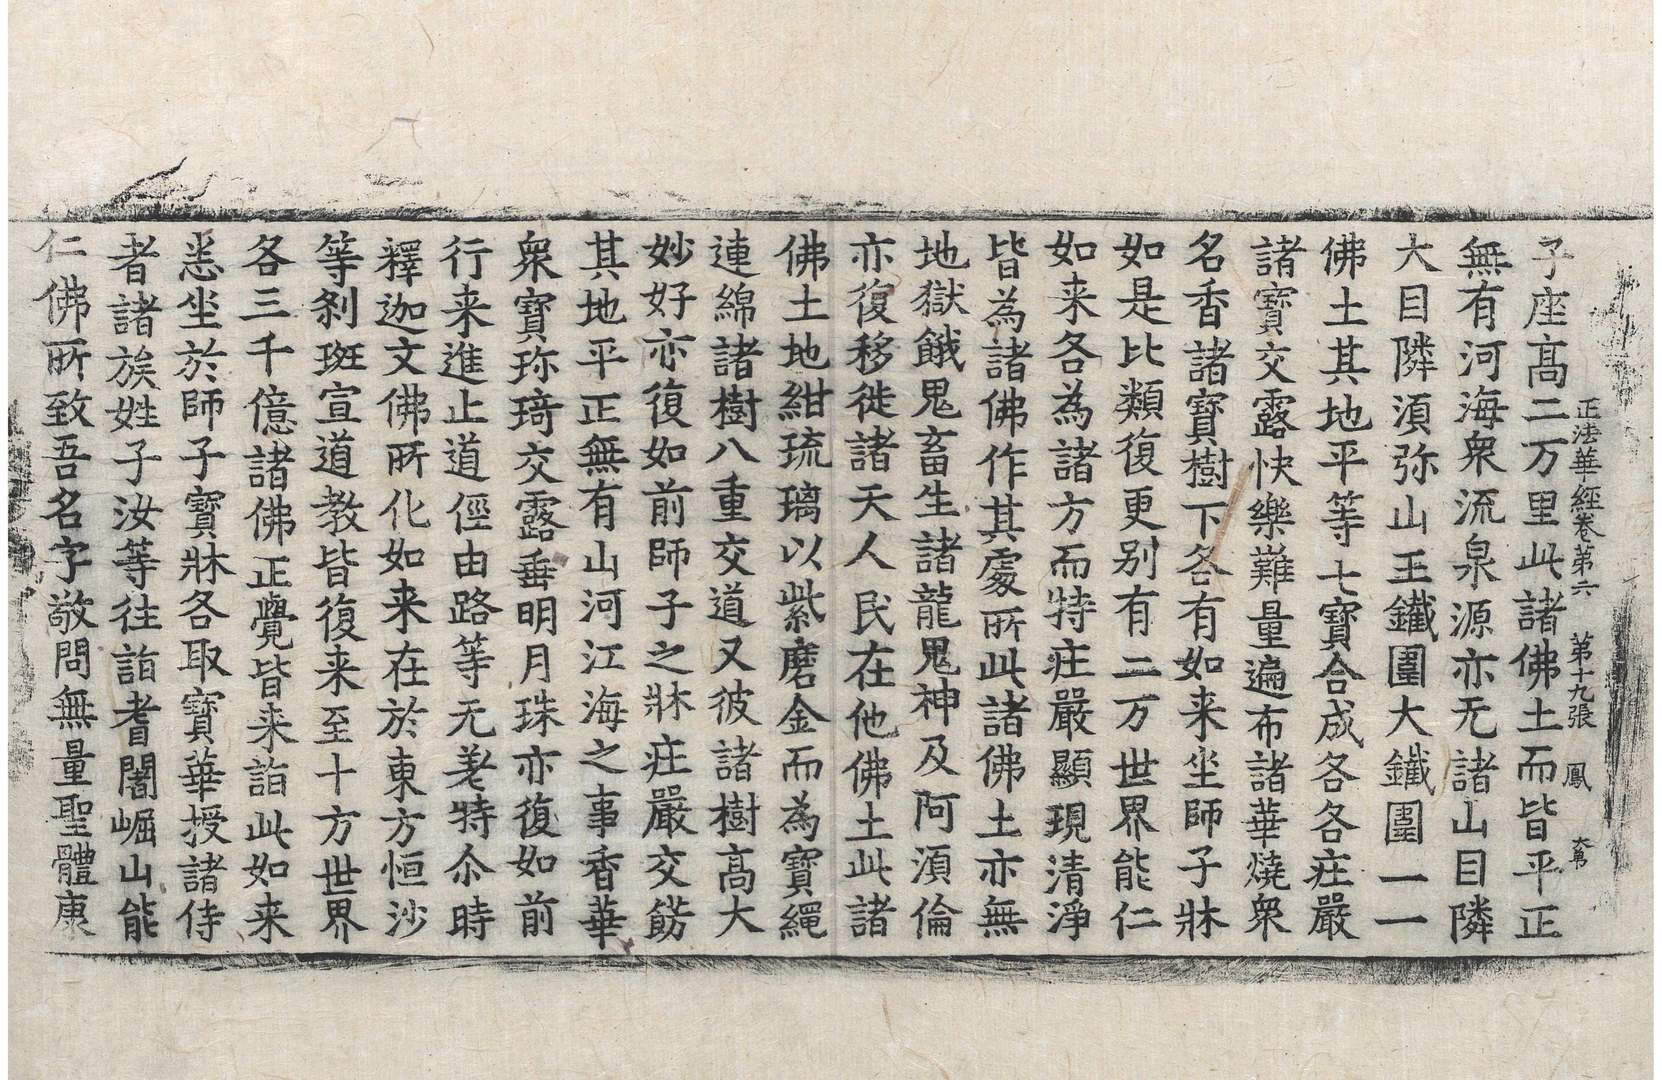 正法華經卷第六 第十九張 鳳
子座高二万里此諸佛土而皆平正
無有河海衆流泉源亦无諸山目隣
大目隣須弥山王鐵圍大鐵圍一一
佛土其地平等七寶合成各各莊嚴
諸寶交露快樂難量遍布諸華燒衆
名香諸寶樹下各有如来坐師子牀
如是比類復更别有二万世界能仁
如来各為諸方而特莊嚴顯現清淨
皆為諸佛作其處所此諸佛土亦無
地獄餓鬼畜生諸龍鬼神及阿須倫
亦復移徙諸天人民在他佛土此諸
佛土地紺琉璃以紫磨金而為寶繩
連綿諸樹八重交道又彼諸樹高大
妙好亦復如前師子之牀莊嚴交餝
其地平正無有山河江海之事香華
衆寶珎琦交露垂明月珠亦復如前
行来進止道徑由路等无差特尒時
釋迦文佛所化如来在於東方恒沙
等剎班宣道教皆復来至十方世界
各三千億諸佛正覺皆来詣此如来
悉坐於師子寶牀各取寶華授諸侍
者諸族姓子汝等往詣耆闍崛山能
仁佛所致吾名字敬問無量聖體康